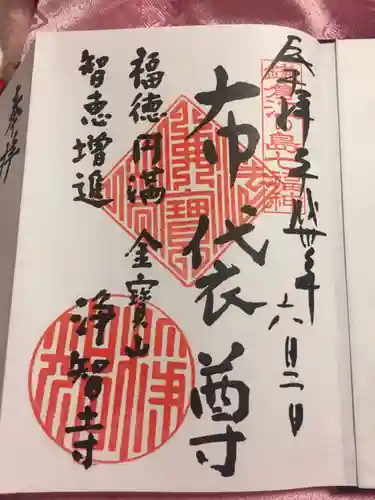 奉拝 平成卅年 六月二日
鎌倉江ノ島七福神
布袋尊
福徳円満 金寶山
智恵増進
浄智寺
奉拝